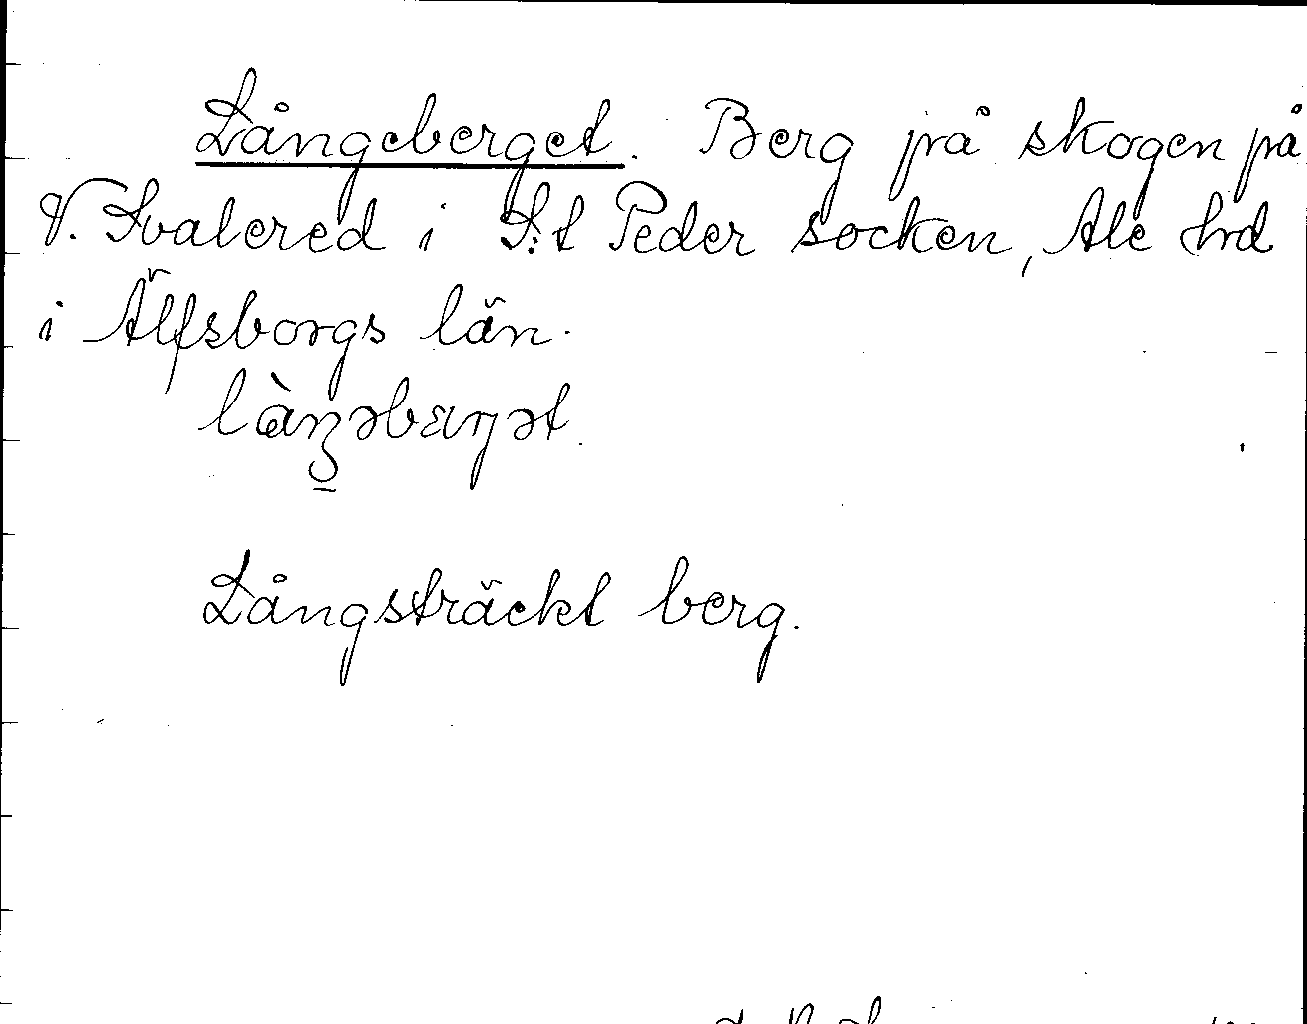 Långeberget. Berg på skogen på
V. Svalered i S:t Peder socken, Ale hrd
i Älfsborgs län.
Långsträckt berg.